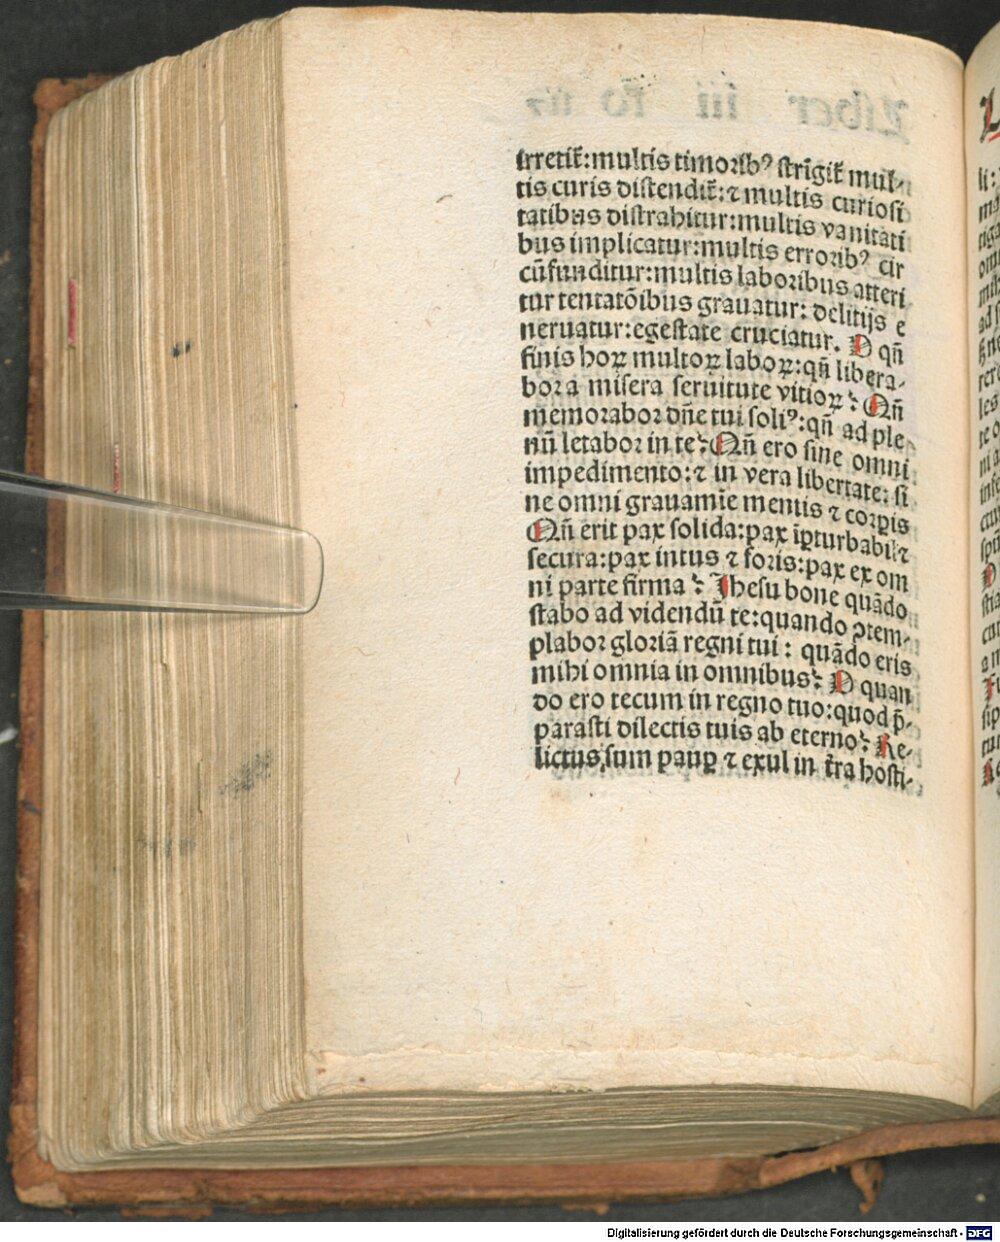 irretit᷑:multis timorib⁹ strı̄git᷑ mul-
tis curis distendit᷑:⁊ multis curiosi
tatibus distrahitur:multis vanitati
bus implicatur:multis errorib⁹ cir
cūfunditur:multis laboribus atteri
tur tentatōibus grauatur: delitijs e
neruatur:egestate cruciatur. O qn̄
finis hoꝝ multoꝝ laboꝝ:qn̄ libera-
bor a misera seruitute vitioꝝ: Qn̄
memorabor dn̄e tui soli⁹:qn̄ ad ple
nū letabor in te: Qn̄ ero sine omni
impedimento:⁊ in vera libertate: si
ne omni grauamīe mentis ⁊ corꝑis
Qn̄ erit pax solida:pax īꝑturbabil⁊
secura:pax intus ⁊ foris:pax ex om
ni parte firma: Jhesu bone quādo
stabo ad videndū te:quando ꝯtem-
plabor gloriā regni tui: quādo eris
mihi omnia in omnibus: O quan
do ero tecum in regno tuo:quod p̄-
parasti dilectis tuis ab eterno: Re-
lictus sum pauꝑ ⁊ exul in t̄ra hosti-
Digitalisierung gefördert durch die Deutsche Forschungsgemeinschaft - DFG